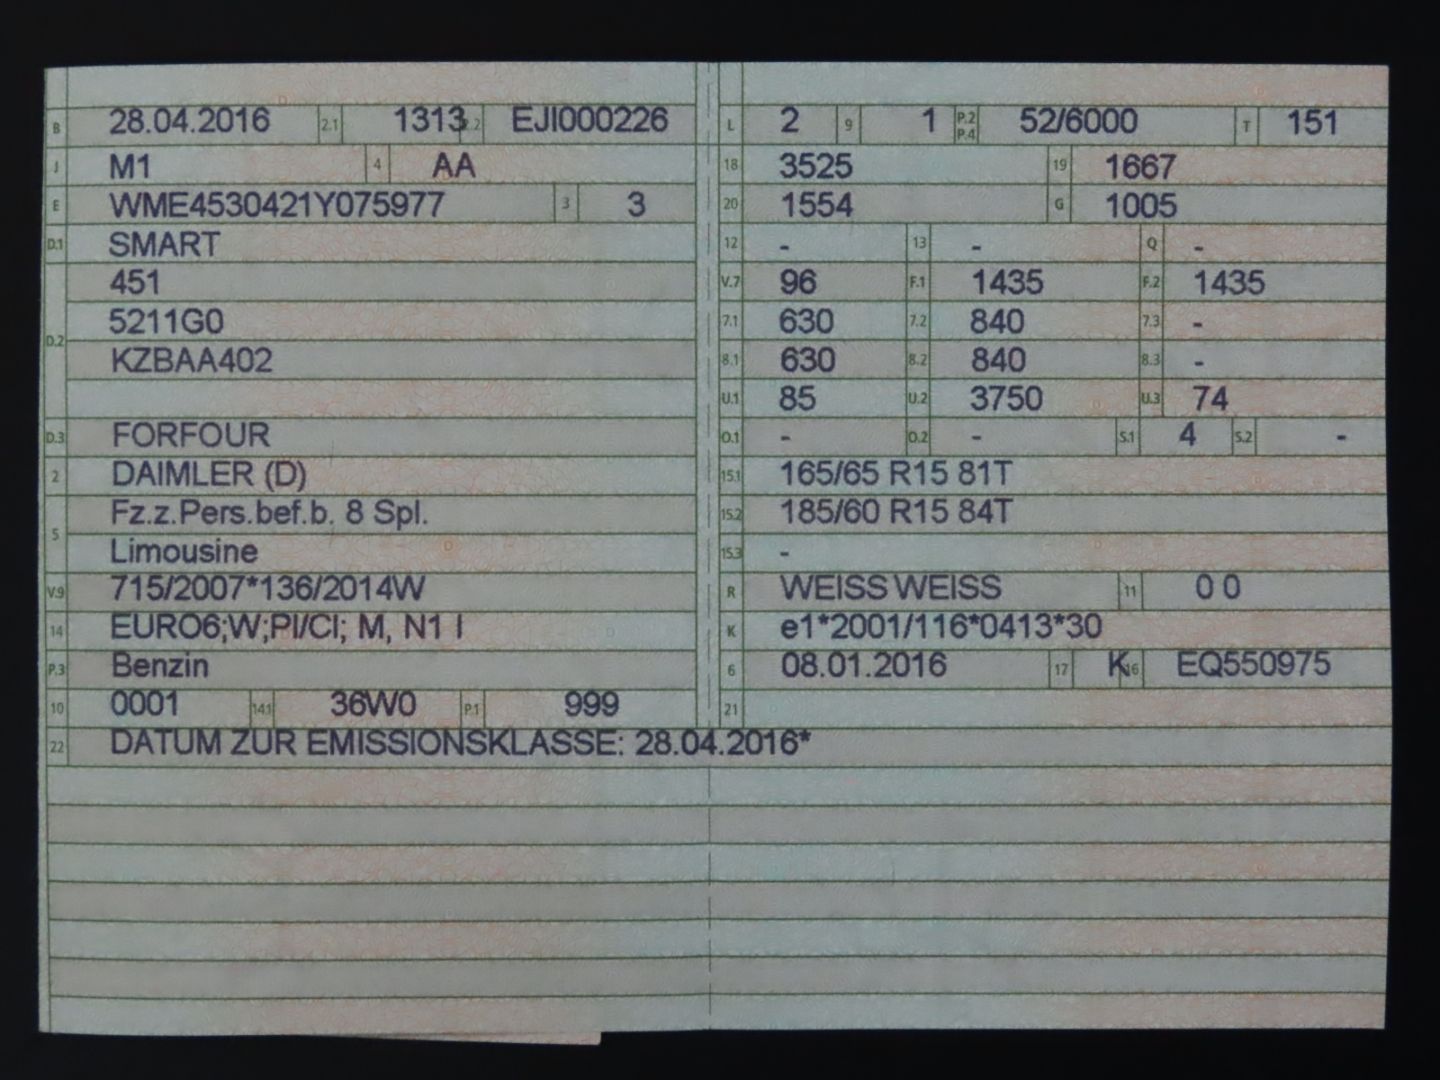 B 28.04.2016 2.1 1313 2.2 EJI000226
J M1 4 AA
E WME4530421Y075977 3 3
D.1 SMART
451
5211G0
D.2
KZBAA402
D.3 FORFOUR
2 DAIMLER (D)
Fz.z.Pers.bef.b. 8 Spl.
5
Limousine
V.9 715/2007*136/2014W
14 EURO6;W;PI/CI; M, N1 I
P.3 Benzin
10 0001 14.1 36W0 P.1 999
22 DATUM ZUR EMISSIONSKLASSE: 28.04.2016*
L 2 9 1 P.2 P.4 52/6000 T 151
18 3525 19 1667
20 1554 G 1005
12 - 13 - Q -
V.7 96 F.1 1435 F.2 1435
7.1 630 7.2 840 7.3 -
8.1 630 8.2 840 8.3 -
U.1 85 U.2 3750 U.3 74
O.1 - O.2 - S.1 4 S.2 -
15.1 165/65 R15 81T
15.2 185/60 R15 84T
15.3 -
R WEISS WEISS 11 0 0
K e1*2001/116*0413*30
6 08.01.2016 17 K 16 EQ550975
21